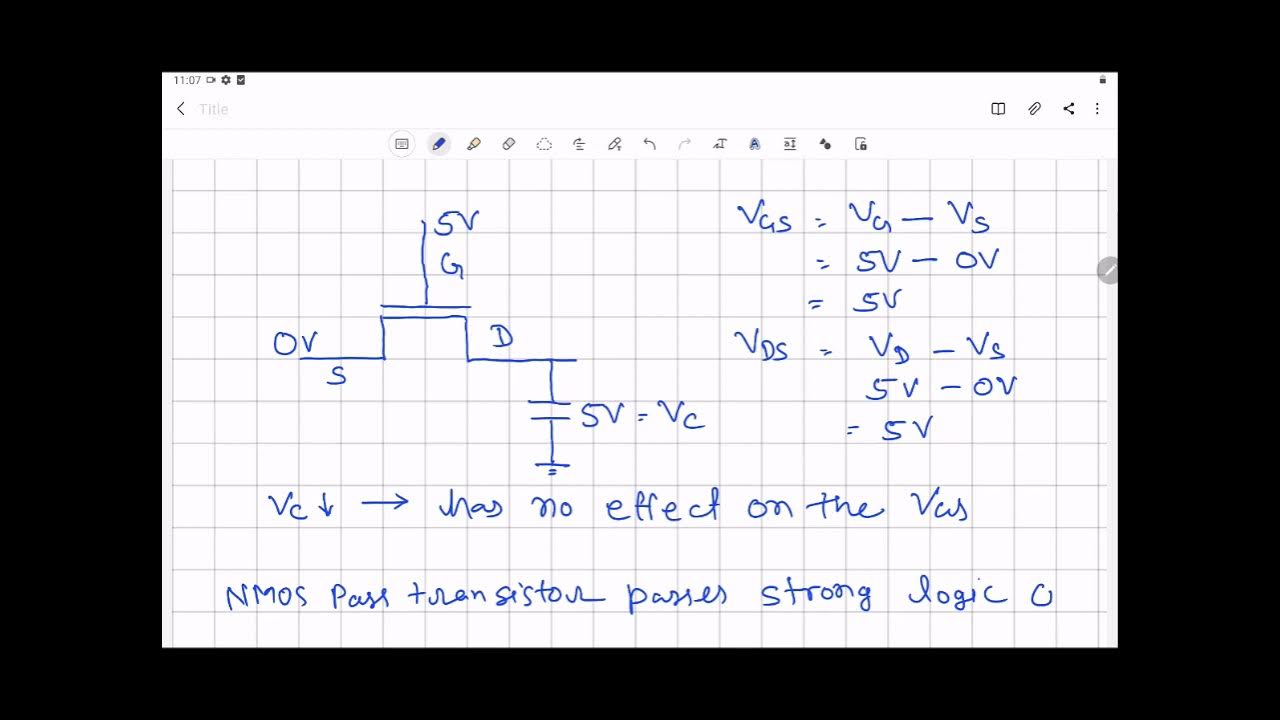 11:07
Title
5V
G
0V
D
S
5V = VC
VGS = VG - VS
= 5V - 0V
= 5V
VDS = VD - VS
5V - 0V
= 5V
VC ↓ → has no effect on the VGS
NMOS Pass transistor passes strong logic 0